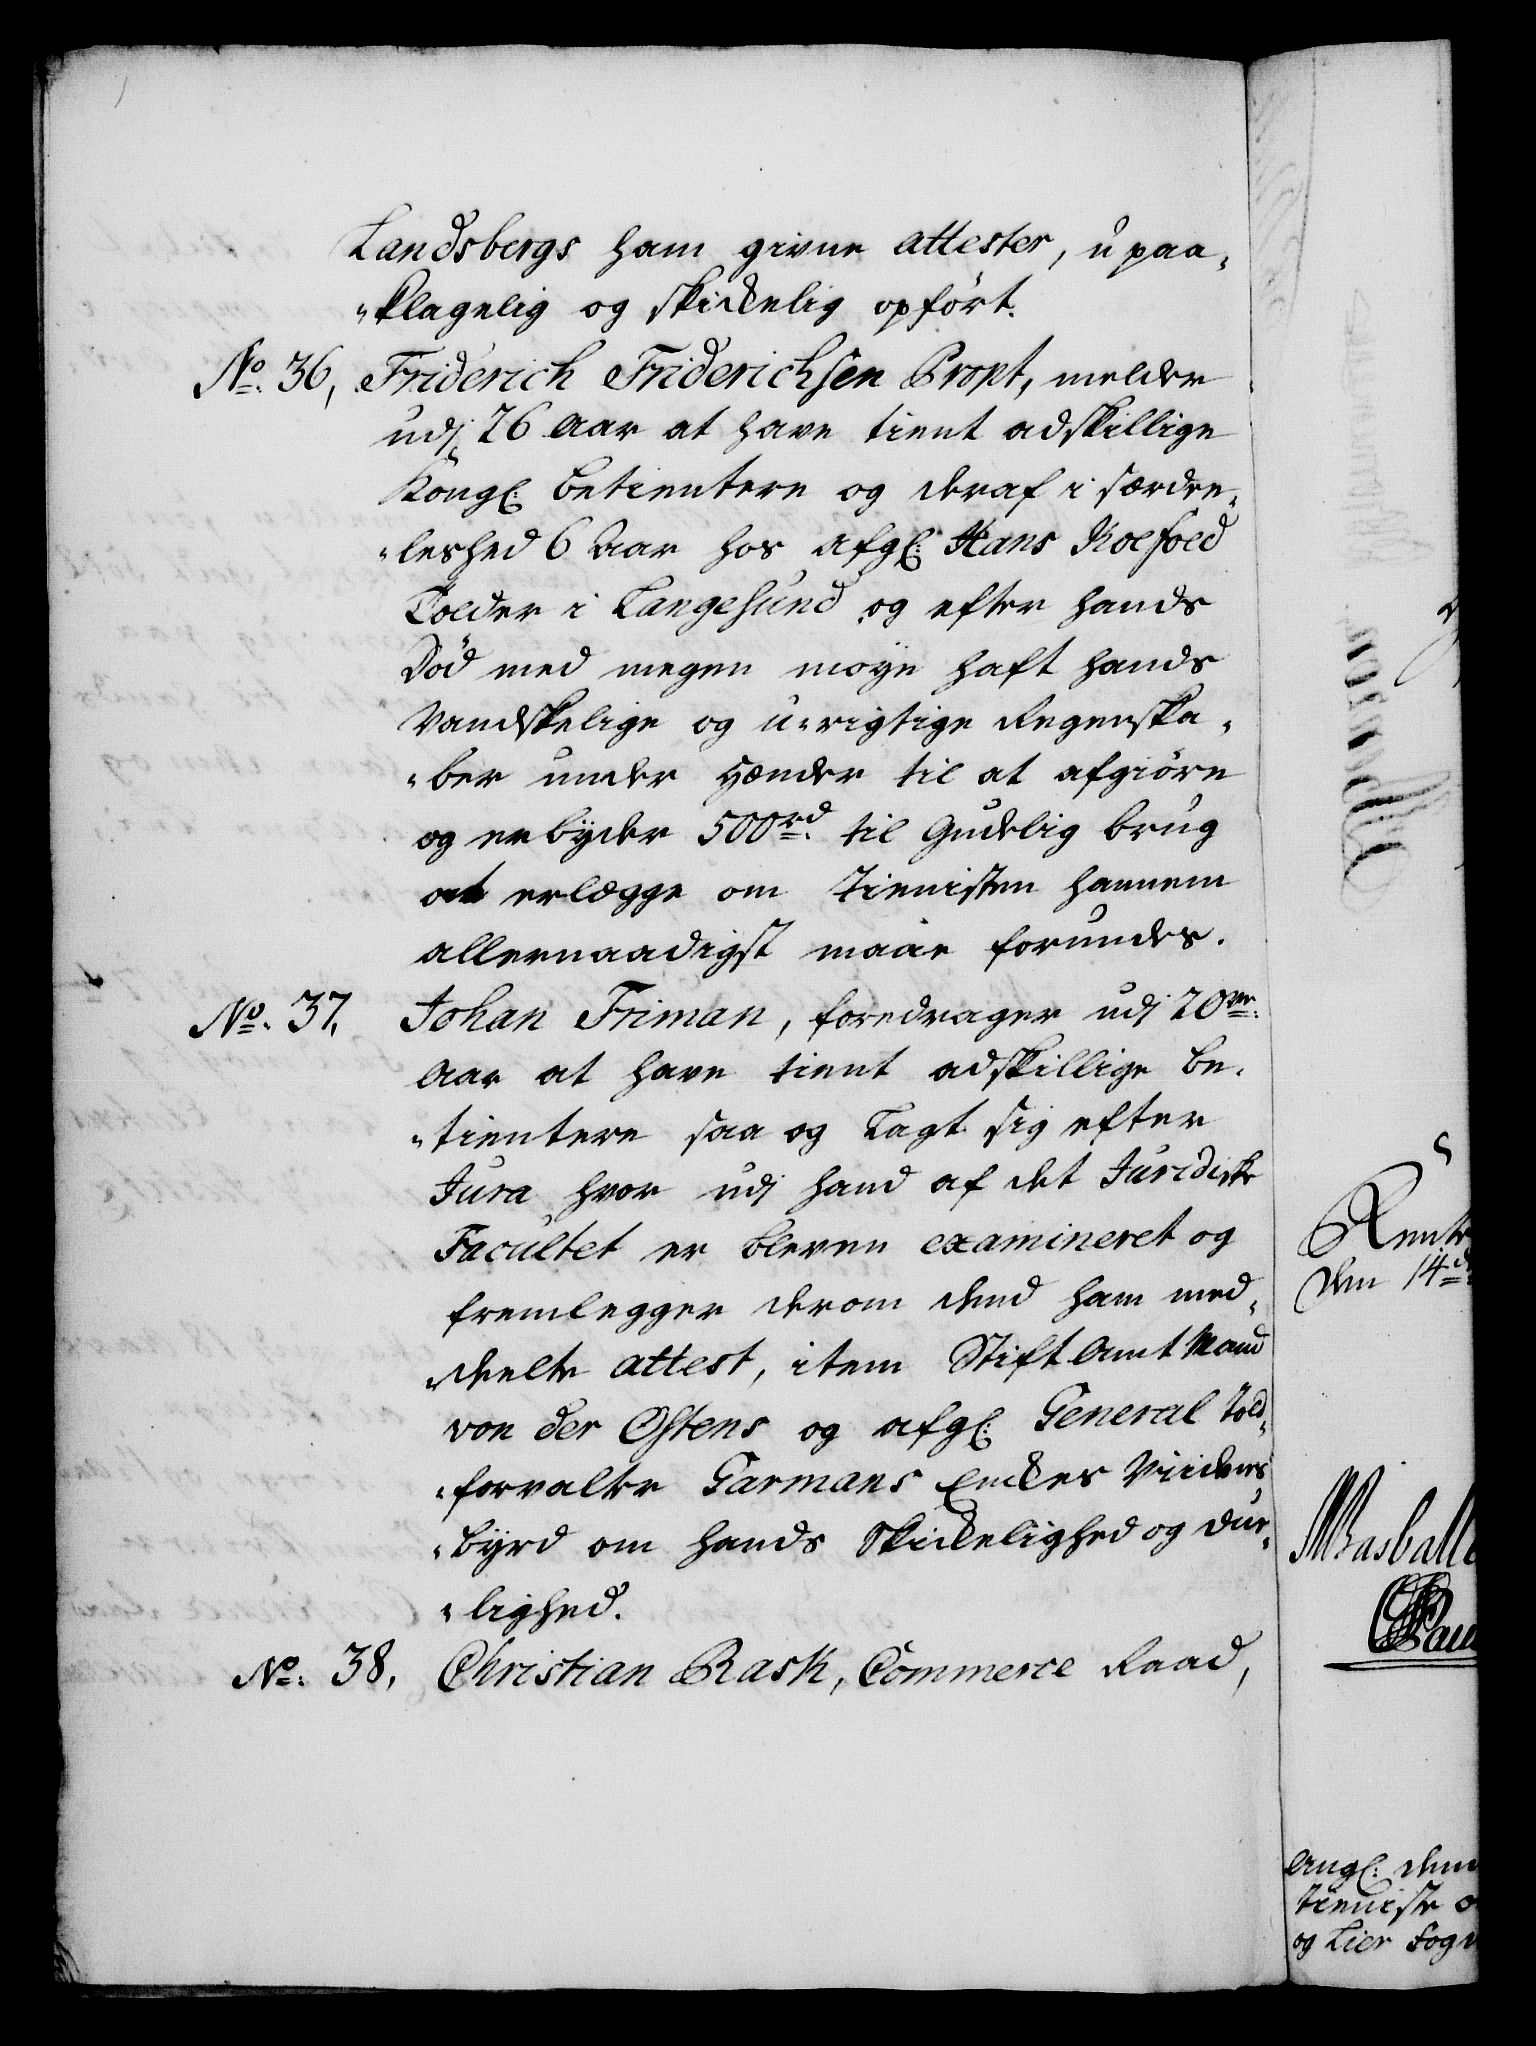 Landsbergs ham givne attester, upaa-
"klagelig og skikkelig opført.
No. 36, Friderich Friderichsen Propt, melder
udj 26 Aar at have tient adskillige
Kongl: betientere og deraf i særdee-
"leshed 6 Aar hos afgl: Hans Koefoed
Tolder i Langesund, og efter hands
Død med megen moye haft hands
Vandskelige og u-rigtige Regenska-
"ber under Hænder til at afgiøre
og erbyder 500rd. til Gudelig brug
at erlægge om Tienisten hannem
allernaadigst maae forundes.
No. 37. Johan Friman, foredrager udj 20ve
Aar at have tient adskillige be-
"tientere saa og Lagt sig efter
Jura hvor udj hand af det Juridiske
Facultet er bleven examineret og
fremlegger derom dend ham med-
"deelte attest, item Stift Amt Mand
von der Ostens og afgl: General Told-
"forvalter Garmans Enckes Vidnes
"byrd om hands Skikkelighed og due-
"lighed.
No. 38, Christian Rask, Commerce Raad,
Rente
den 14d
Angl: den
tieniste
og Lier Fog